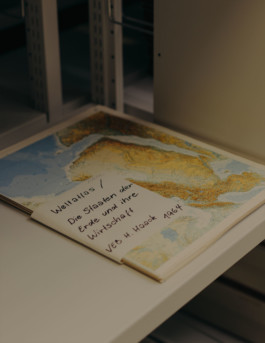 Weltatlas /
Die Staaten der
Erde und ihre
Wirtschaft
VEB. H. Haack 1957